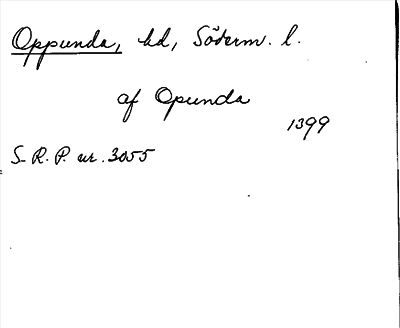 Oppunda, hd, Söderm. l.
af Opunda
1399
S. R. P. nr. 3055